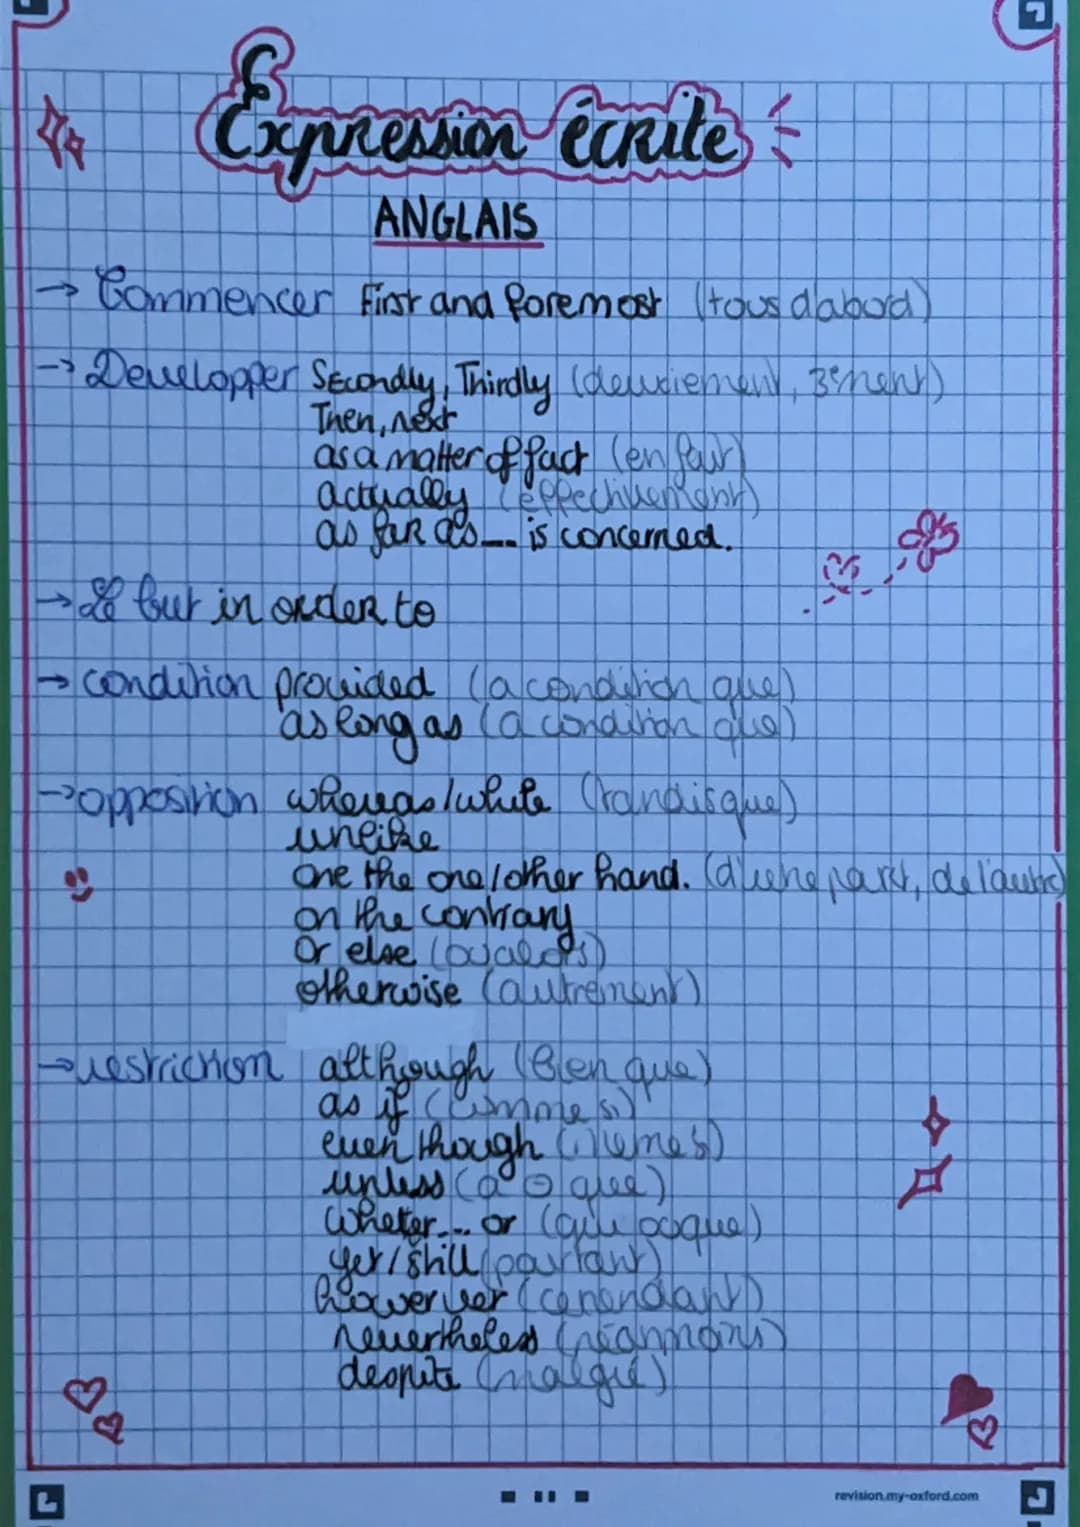 Expression écrite
ANGLAIS
→ Commencer First and foremost (tous d'abord)
→ Developper Secondly, Thirdly (deuxiement, 3ement)
Then, next
as a matter of fact (en fait)
actually (effectivement)
as far as ... is concerned.
→ Le but in order to
→ condition provided (a condition que)
as long as (a condition que)
→ opposition whereas/while (tandisque)
unlike
one the one/other hand. (d'une part, de l'autre)
on the contrary
Or else (ou alors)
otherwise (autrement)
→ restriction although (Bien que)
as if (comme si)
even though
unless (a ⊖ que)
wheter... or
yet/still (pourtant)
howerver (cependant)
nevertheless (néanmoins)
despite (malgré)
revision.my-oxford.com